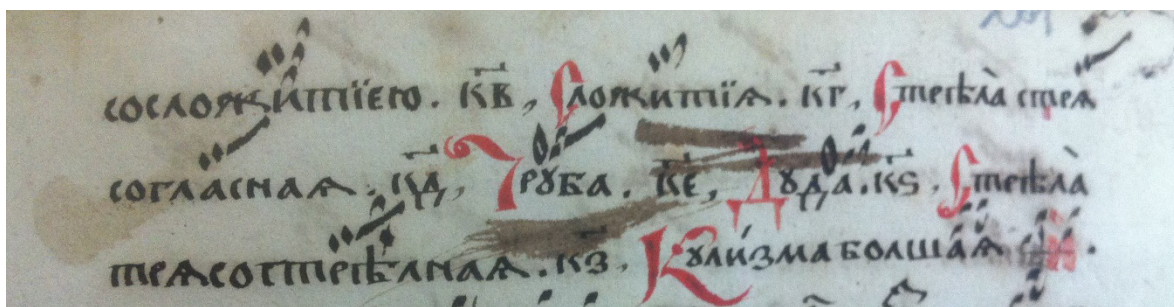 сосложи́тїею . к҃в , Сложи́тїѧ . к҃г , Стрѣла̀ стрѧ
согла́снаѧ . к҃д , Трꙋба . к҃є , Дꙋда . к҃ѕ . Стрѣла̀
трѧсострѣ́лнаѧ . к҃з , Кꙋли́зма болша́ѧ